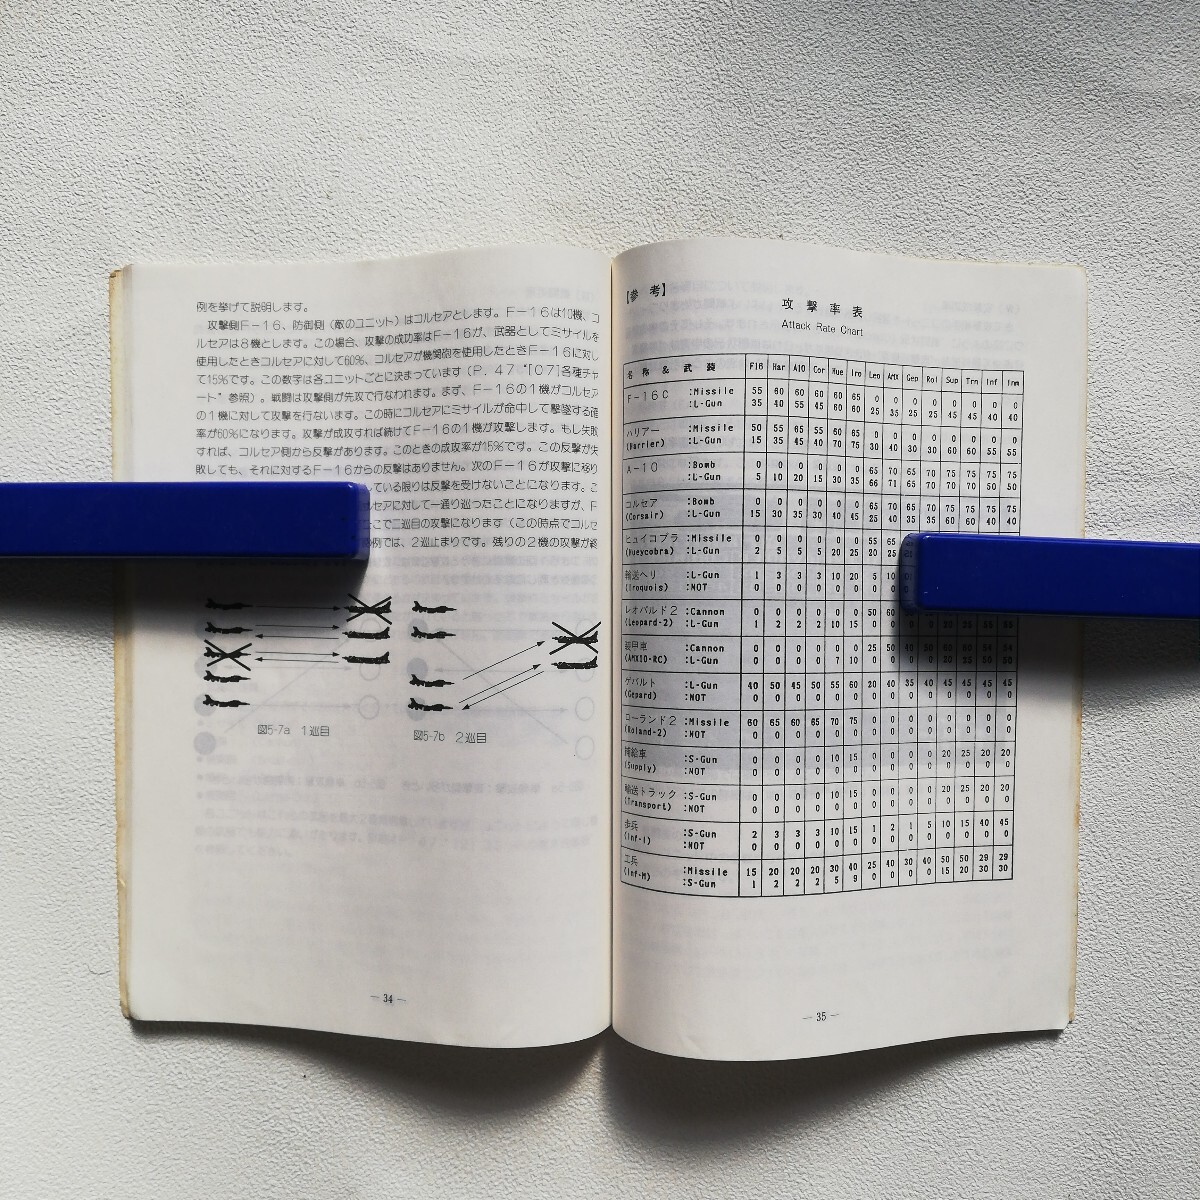 例を挙げて説明します。
攻撃側F－16、防御側（敵のユニット）はコルセアとします。F－16は10機、コ
ルセアは8機とします。この場合、攻撃の成功率はF－16が、武器としてミサイルを
使用したときコルセアに対して60%、コルセアが機関砲を使用したときF－16に対し
て15%です。この数字は各ユニットごとに決まっています（P．47 "［07］各種チャ
ート"参照）。戦闘は攻撃側が先攻で行なわれます。まず、F－16の1機がコルセア
の1機に対して攻撃を行ないます。この時にコルセアにミサイルが命中して撃墜する確
率が60%になります。攻撃が成攻すれば続けてF－16の1機が攻撃します。もし失敗
すれば、コルセア側から反撃があります。このときの成攻率が15%です。この反撃が失
敗しても、それに対するF－16からの反撃はありません。次のF－16が攻撃に移り
している限りは反撃を受けないことになります。こ
ルセアに対して一通り巡ったことになりますが、F
こで二巡目の攻撃になります（この時点でコルセ
の例では、2巡止まりです。残りの2機の攻撃が終
図5-7a 1巡目
図5-7b 2巡目
— 34 —
【参 考】
攻 撃 率 表
Attack Rate Chart
名 称 & 武 装 F16 Har A10 Cor Hue Iro Leo AMX Gep Rol Sup Trn Inf Inm
F－16C :Missile 55 60 60 60 60 65 0 0 0 0 0 0 0 0
:L-Gun 35 40 55 45 60 60 25 35 25 25 45 45 40 40
ハリアー :Missile 50 55 65 55 60 65 0 0 0 0 0 0 0 0
(Harrier) :L-Gun 15 35 45 40 70 75 30 40 30 30 60 60 55 55
A－10 :Bomb 0 0 0 0 0 0 65 70 65 70 75 75 75 75
:L-Gun 5 10 20 15 30 35 66 71 65 70 70 70 50 50
コルセア :Bomb 0 0 0 0 0 0 65 70 70 75 75 75 75 75
(Corsair) :L-Gun 15 30 35 30 40 45 25 40 35 35 60 60 40 40
ヒュイコブラ :Missile 0 0 0 0 0 0 55 65
(Hueycobra) :L-Gun 2 5 5 5 20 25 20 25
輸送ヘリ :L-Gun 1 3 3 3 10 20 5 10
(Iroquois) :NOT 0 0 0 0 0 0 0 0
レオパルド2 :Cannon 0 0 0 0 0 0 50 60
(Leopard-2) :L-Gun 1 2 2 2 10 15 0 0
装甲車 :Cannon 0 0 0 0 0 0 25 50
(AMX10-RC) :L-Gun 0 0 0 0 7 10 0 0
ゲパルト :L-Gun 40 50 45 50 55 60 20 40 35 40 45 45 45 45
(Gepard) :NOT 0 0 0 0 0 0 0 0 0 0 0 0 0 0
ローランド2 :Missile 60 65 60 65 70 75 0 0 0 0 0 0 0 0
(Roland-2) :NOT 0 0 0 0 0 0 0 0 0 0 0 0 0 0
補給車 :S-Gun 0 0 0 0 10 15 0 0 0 0 20 25 20 20
(Supply) :NOT 0 0 0 0 0 0 0 0 0 0 0 0 0 0
輸送トラック :S-Gun 0 0 0 0 10 15 0 0 0 0 20 25 20 20
(Transport) :NOT 0 0 0 0 0 0 0 0 0 0 0 0 0 0
歩兵 :S-Gun 2 3 3 3 10 15 1 2 1 5 10 15 40 45
(Inf-I) :NOT 0 0 0 0 0 0 0 0 0 0 0 0 0 0
工兵 :Missile 15 20 20 20 30 40 25 40 30 40 50 50 29 29
(Inf-M) :S-Gun 1 2 2 2 5 9 0 0 0 0 15 20 30 30
— 35 —